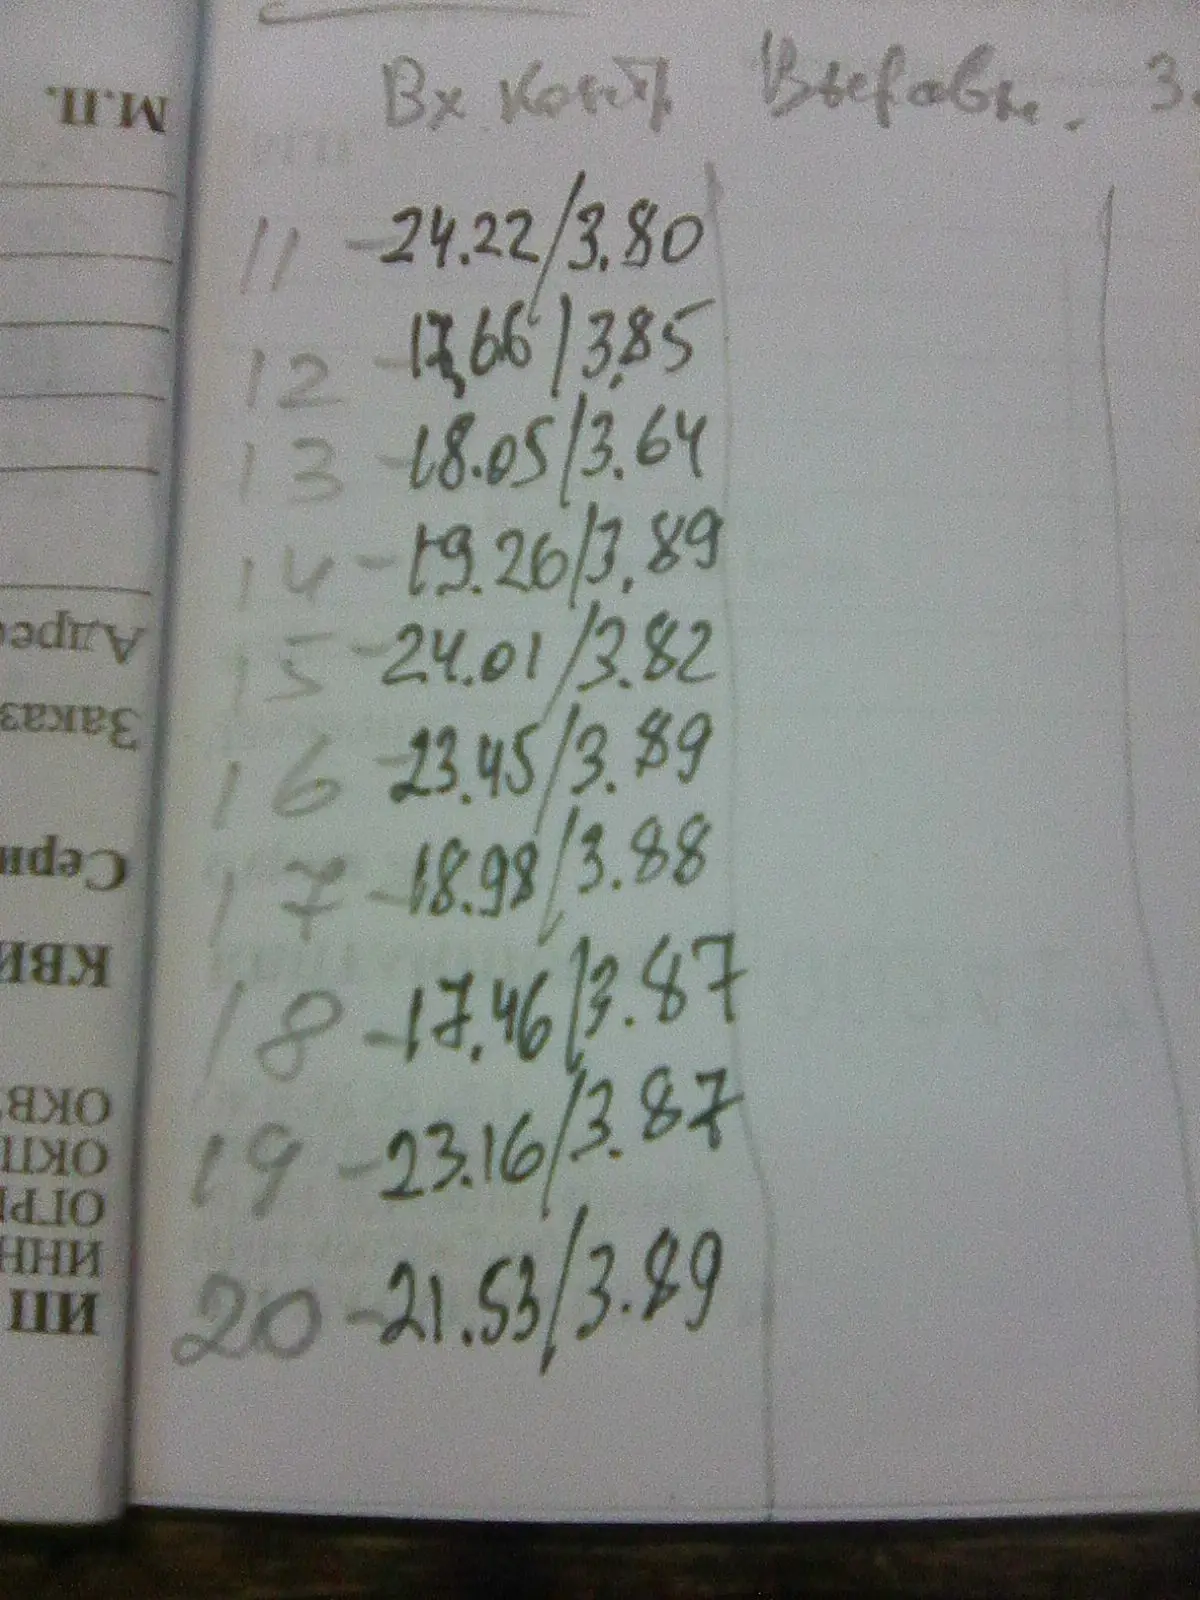 Вх. контр Выравн. З
11 - 24.22/3.80
12 - 17,66/3,85
13 - 18.05/3.64
14 - 19.26/3.89
15 - 24.01/3.82
16 - 23.45/3.89
17 - 18.98/3.88
18 - 17.46/3.87
19 - 23.16/3.87
20 - 21.53/3.89
М.П.
Адрес
Заказ
Сери
КВИ
ОКВ
ОКП
ОГР
ИНН
ИП